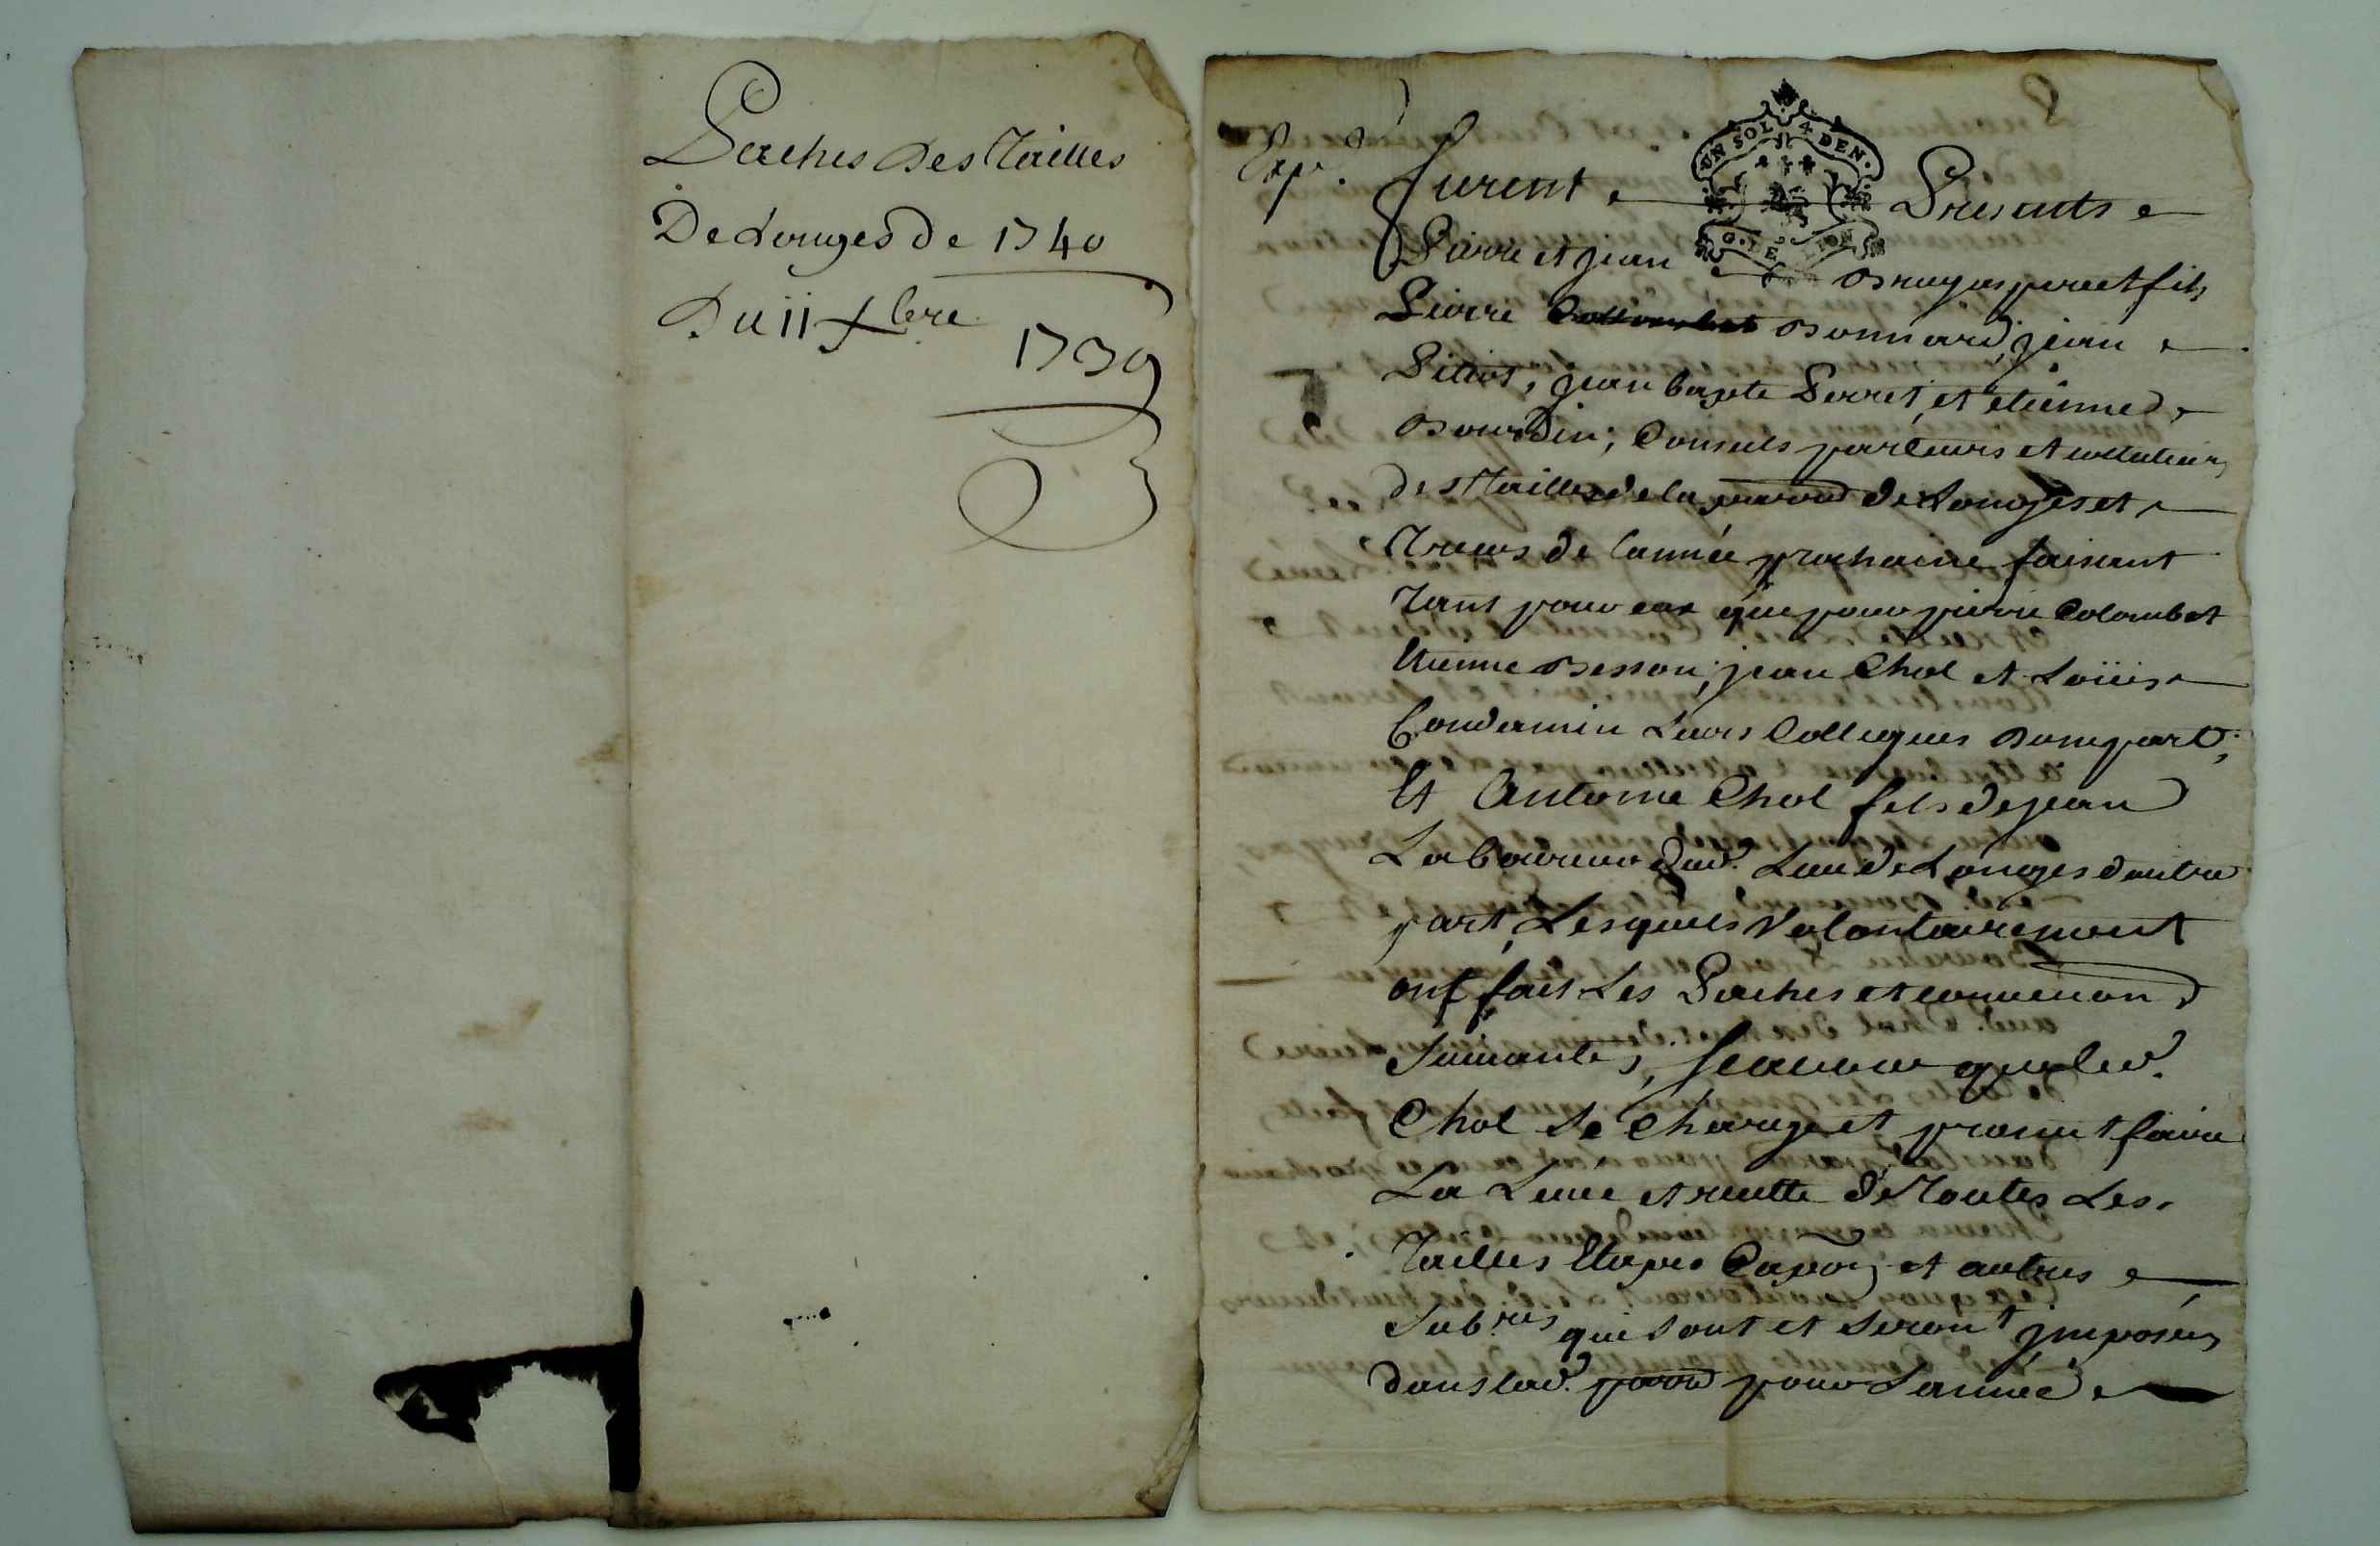 Paches des Tailles
De Longes de 1740
Du 11 xbre
1739
Exp.
UN SOL 4 DEN.
G. LE ION
furent Presents
Pierre et jean Bruyas pere et fils
Pierre Bonnard, jean
Pitiot, jean baptte Perret, et etienne
Bourdin; Consuls parteurs et collecteurs
des Tailles de la parroe de Longes et
Treves de l'année prochaine faisant
Tant pour eux que pour pierre Colombet
Etienne Besson, jean Chol et Loüis
Condamin Leurs Collegues Dunepart,
Et Antoine Chol fils de jean
Laboureur dud. Lieu de Longes dautre
part, Lesquels Volontairement
ont fait Les Paches et convenon
Suivantes, scavoir que led.
Chol Se Charge et promet faire
La Levée et recette de Toutes Les
Tailles Etapes Capon et autres
Subres qui sont et seront jmposés
dans lad. parroe pour L'année